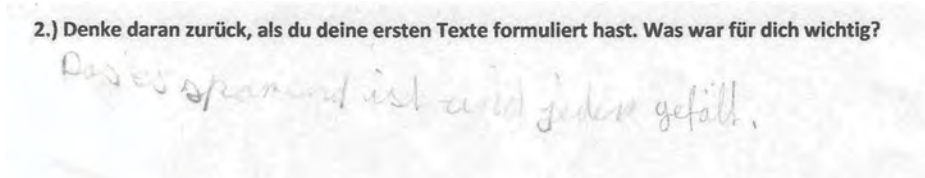 2.) Denke daran zurück, als du deine ersten Texte formuliert hast. Was war für dich wichtig?
Das es spannend ist und jeden gefällt.